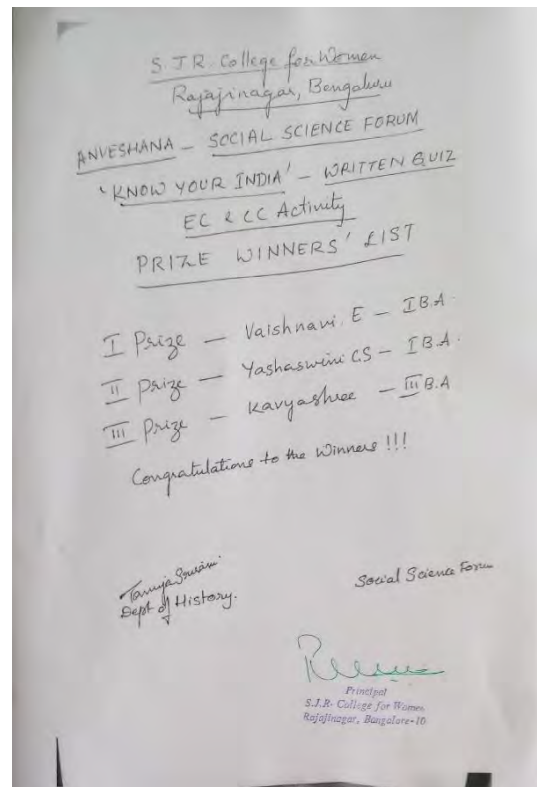 S.J.R. College for Women
Rajajinagar, Bengaluru
ANVESHANA – SOCIAL SCIENCE FORUM
'KNOW YOUR INDIA' – WRITTEN QUIZ
EC & CC Activity
PRIZE WINNERS' LIST
I Prize – Vaishnavi. E – I B.A.
II Prize – Yashaswini C.S – I B.A.
III Prize – Kavyashree – III B.A
Congratulations to the Winners !!!
Dept of History.
Social Science Forum
Principal
S.J.R. College for Women
Rajajinagar, Bangalore-10